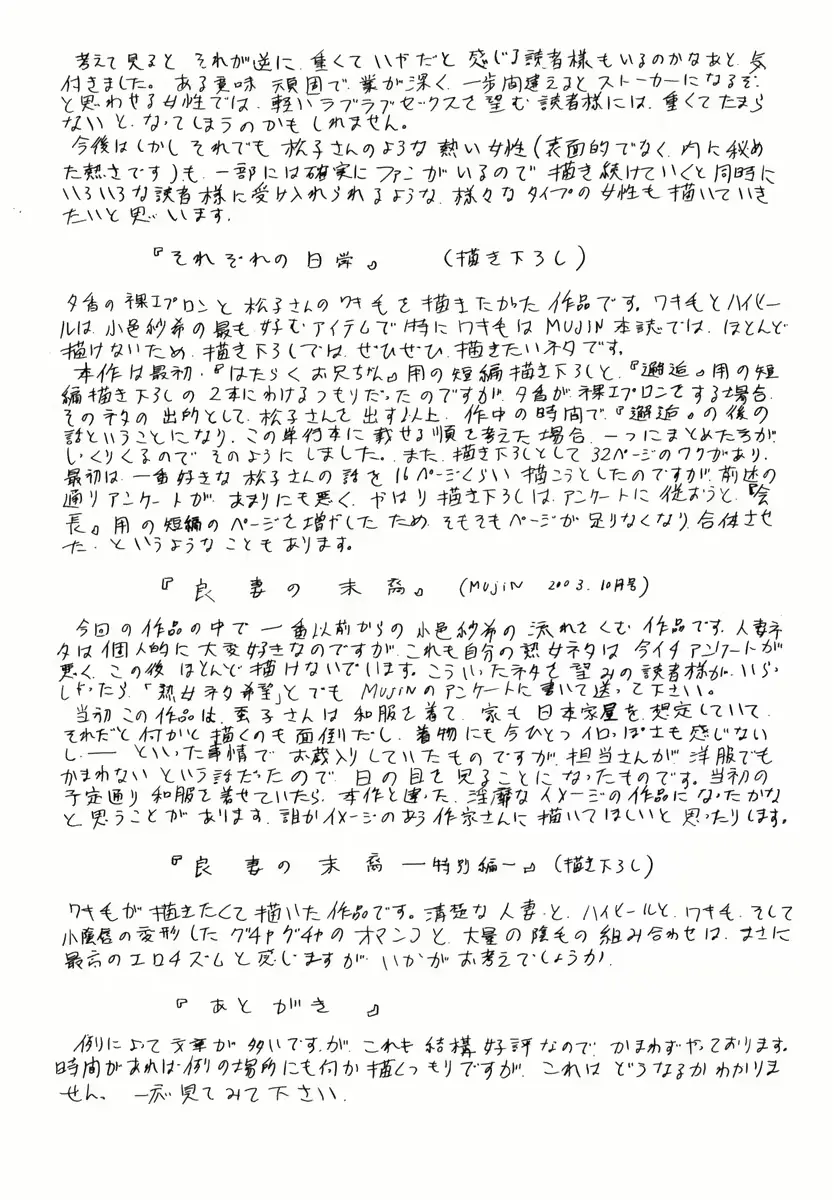 考えて見ると それが逆に、重くていやだと 感じる読者様もいるのかなあと、気
付きました。ある意味 頑固で、業が深く、一歩間違えるとストーカーになるぞ
と思わせる女性では、軽いラブラブセックスを望む読者様には、重くてたまら
ないと、なってしまうのかもしれません。
今後はしかし それでも 松子さんのような 熱い女性(表面的でなく、内に秘め
た熱さです)も、一部には確実に ファンがいるので 描き続けていくと同時に
いろいろな読者様に受け入れられるような、様々なタイプの女性も描いていき
たいと思います。
『それぞれの日常』 (描き下ろし)
夕香の裸エプロンと 松子さんのワキ毛を描きたかった作品です。ワキ毛とハイヒー
ルは、小邑紗希の最も好むアイテムで特にワキ毛はMUJIN本誌では、ほとんど
描けないため、描き下ろしでは、ぜひぜひ、描きたいネタです。
本作は最初、『はたらくお兄ちゃん』用の短編描き下ろしと、『邂逅』用の短
編描き下ろしの 2本にわけるつもりだったのですが、夕香が、裸エプロンをする場合、
そのネタの出所として、松子さんを出す以上、作中の時間で、『邂逅』の後の
話ということになり、この単行本に載せる順を考えた場合、一つにまとめた方が
しっくりくるので そのようにしました。また、描き下ろしとして32ページのワクがあり、
最初は、一番好きな 松子さんの話を16ページくらい描こうとしたのですが、前述の
通りアンケートが、あまりにも悪く、やはり描き下ろしは、アンケートに従おうと、『会
長』用の短編のページを増やしたため、そもそもページが足りなくなり、合体させ
た、というようなこともあります。
『良妻の末裔』 (MUJIN 2003.10月号)
今回の作品の中で一番以前からの小邑紗希の流れをくむ作品です。人妻ネ
タは個人的に大変好きなのですが、これも自分の熟女ネタは今イチアンケートが
悪く、この後ほとんど描けないでいます。こういったネタを望みの読者様が、いらっ
しゃったら、「熟女ネタ希望」とでも MUJINのアンケートに書いて送って下さい。
当初この作品は、子さんは和服を着て、家も日本家屋を想定していて、
それだと何かと描くのも面倒だし、着物にも今ひとつイロっぽさも感じない
し、── といった事情で お蔵入りしていたものですが、担当さんが、洋服でも
かまわないという話だったので、日の目を見ることになったものです。当初の
予定通り和服を着せていたら、本作と違った、淫靡なイメージの作品になったかな
と思うことがあります。誰かイメージのあう作家さんに描いてほしいと思ったりします。
『良妻の末裔 ―特別編―』 (描き下ろし)
ワキ毛が描きたくて描いた作品です。清楚な人妻と、ハイヒールと、ワキ毛、そして
小陰唇の変形したグチャグチャのオマンコと、大量の陰毛の組み合わせは、まさに
最高のエロチズムと感じますが、いかがお考えでしょうか。
『あとがき』
例によって文章が多いですが、これも結構好評なので、かまわずやっております。
時間があれば例の場所にも何か描くつもりですが、これはどうなるかわかりま
せん、一応見てみて下さい。